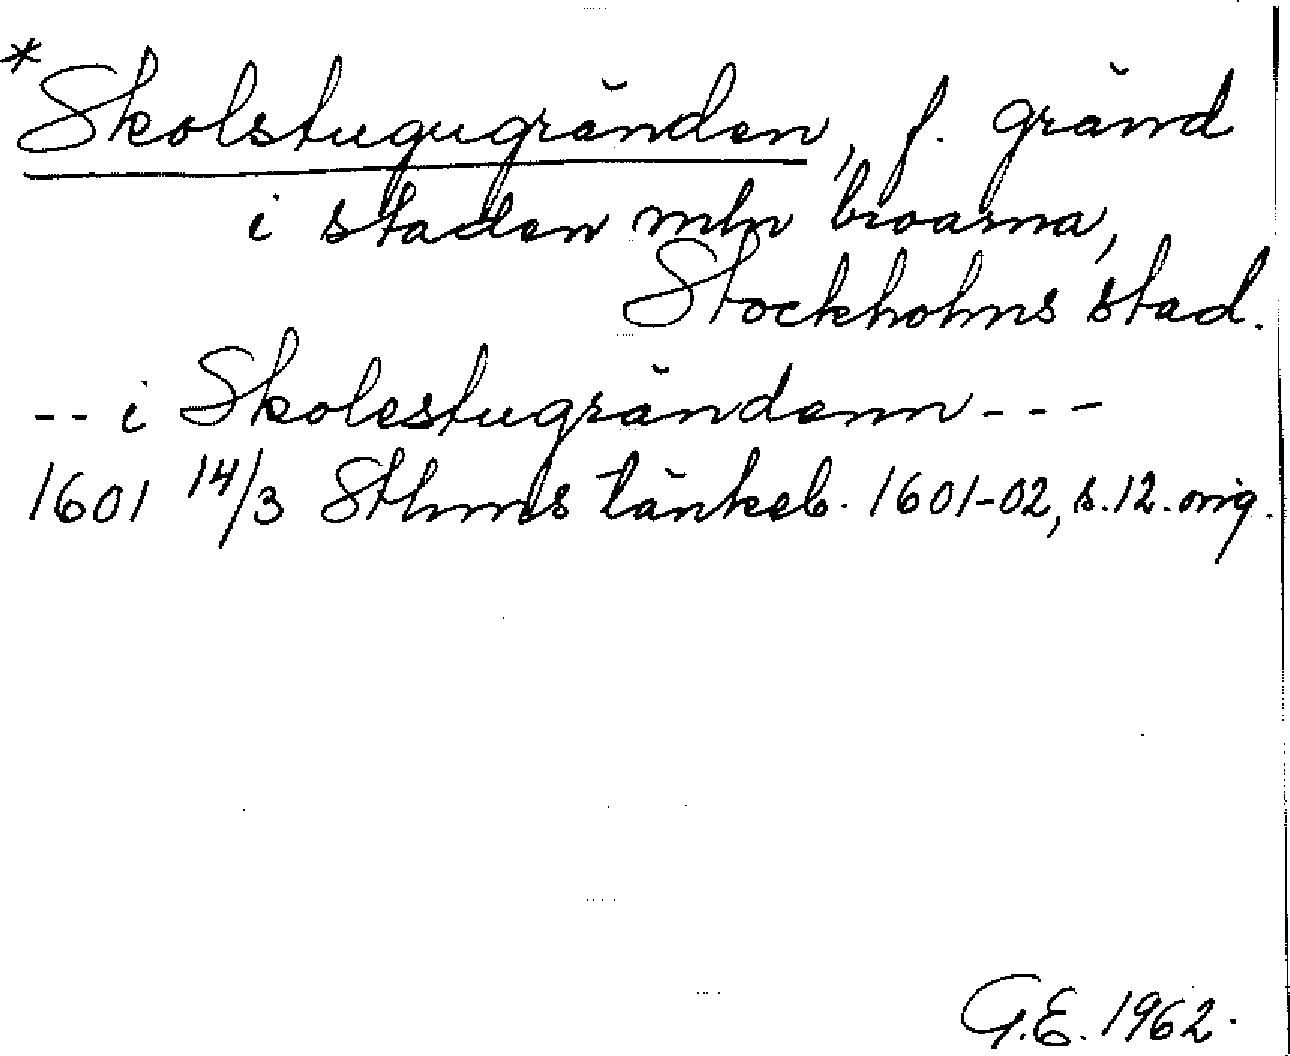 *Skolstugugränden, f. gränd
i staden mln broarna,
Stockholms stad.
-- i Skolestugrändenn ---
1601 14/3 Sthms tänkeb. 1601-02, s.12. orig.
G.E. 1962.